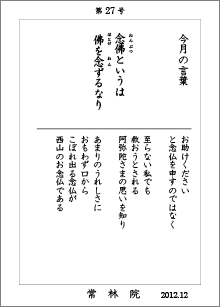 第27号
今月の言葉
念佛というは
佛を念ずるなり
お助けください
と念仏を申すのではなく
至らない私でも
救おうとされる
阿弥陀さまの思いを知り
あまりのうれしさに
おもわず口から
こぼれ出る念仏が
西山のお念仏である
常林院 2012.12